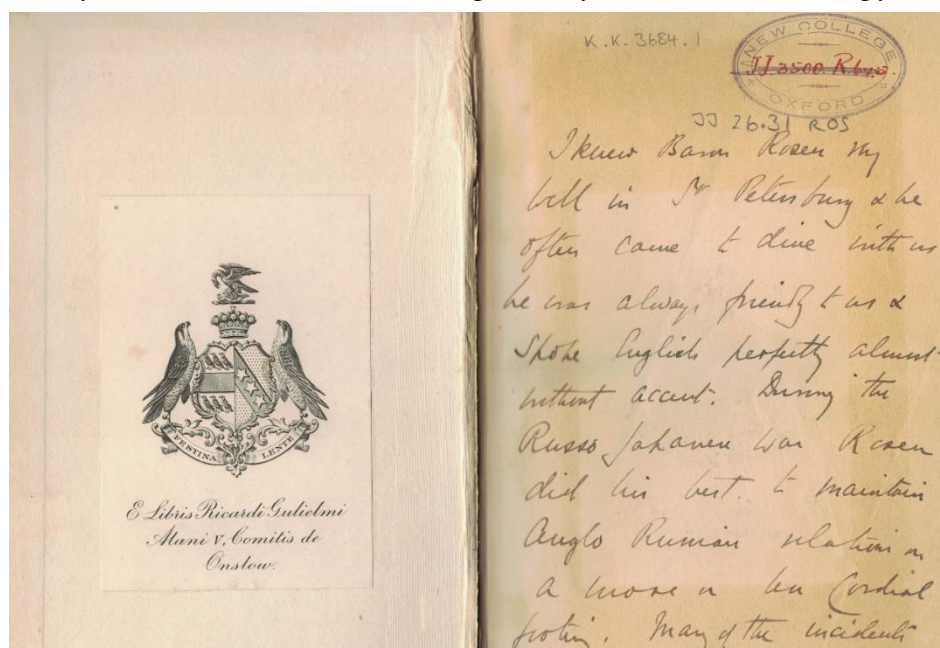 FESTINA LENTE
E Libris Ricardi Gulielmi
Alani V. Comitis de
Onslow.
K.K. 3684.1
NEW COLLEGE
JJ 3500. R
OXFORD
JJ 26.31 ROS
I knew Baron Rosen very
well in St Petersburg & he
often came to dine with us
he was always friendly to us &
spoke English perfectly almost
without accent. During the
Russo Japanese War Rosen
did his best. to maintain
Anglo Russian relations on
a more or less Cordial
footing. Many of the incidents